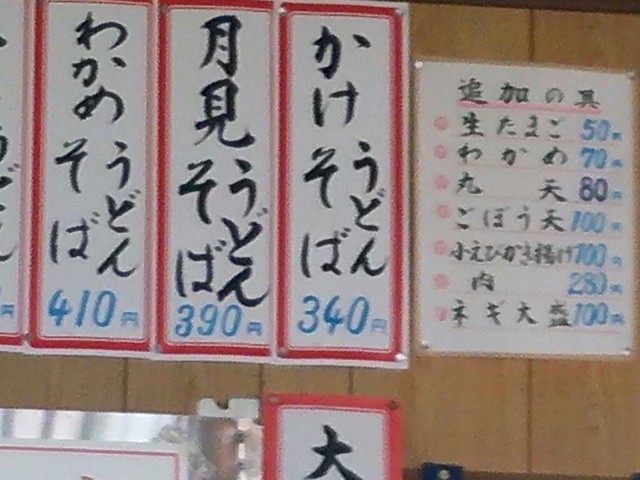 かけ
うどん
そば
340円
月見
うどん
そば
390円
わかめ
うどん
そば
410円
追加の具
生たまご 50円
わかめ 70円
丸天 80円
ごぼう天 100円
小えびかき揚げ 100円
肉 280円
ネギ大盛 100円
大